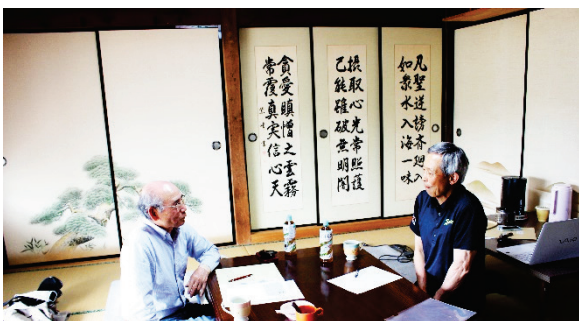 凡聖逆謗斉廻入
如衆水入海一味
摂取心光常照護
已能雖破無明闇
貪愛瞋憎之雲霧
常覆真実信心天